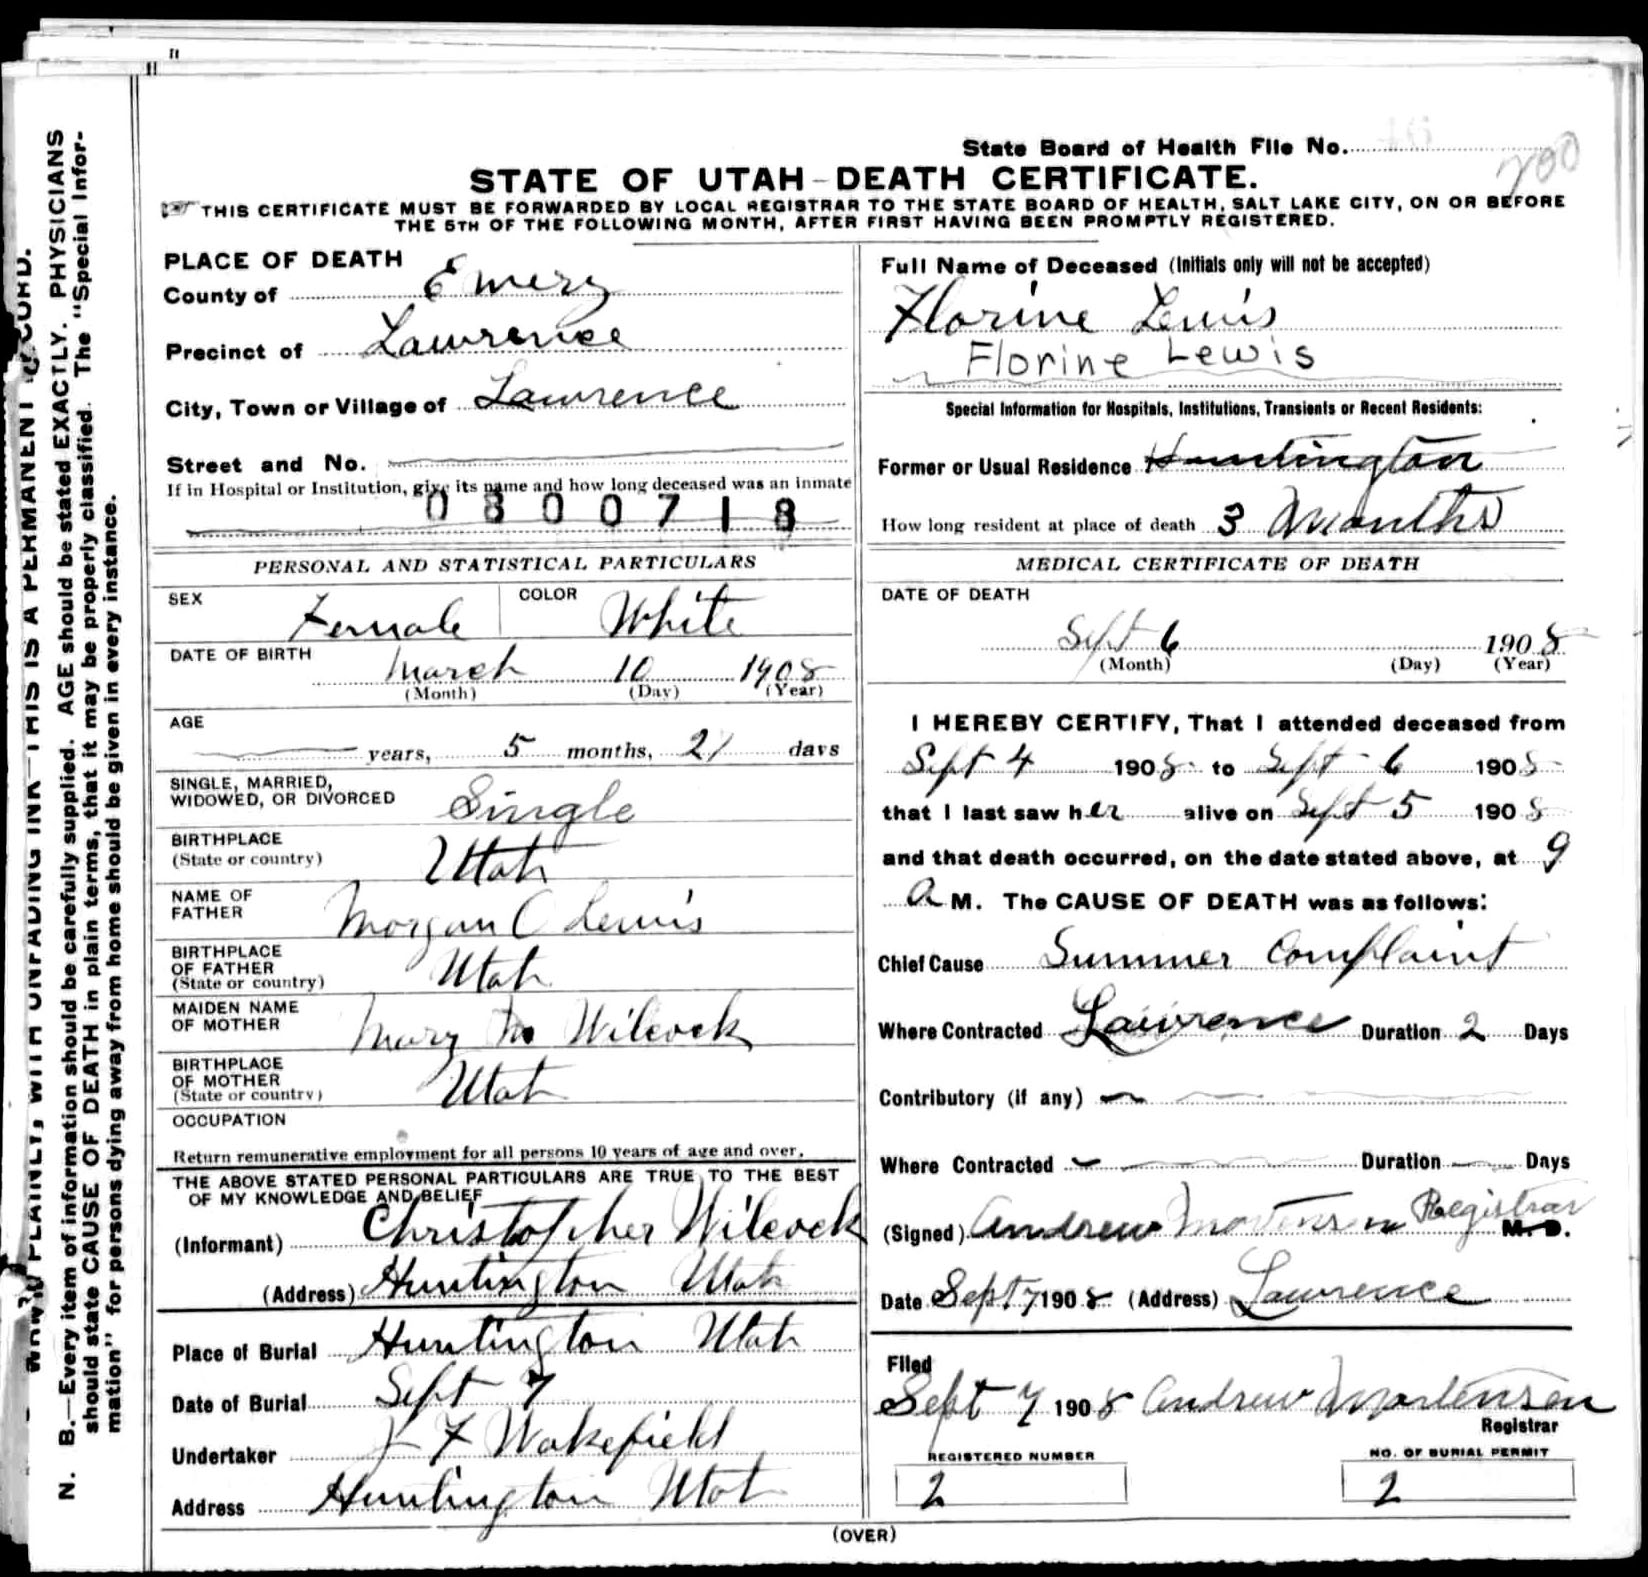 State Board of Health File No. 46
200
STATE OF UTAH-DEATH CERTIFICATE.
THIS CERTIFICATE MUST BE FORWARDED BY LOCAL REGISTRAR TO THE STATE BOARD OF HEALTH, SALT LAKE CITY, ON OR BEFORE
THE 5TH OF THE FOLLOWING MONTH, AFTER FIRST HAVING BEEN PROMPTLY REGISTERED.
PLACE OF DEATH
County of Emery
Precinct of Lawrence
City, Town or Village of Lawrence
Street and No.
If in Hospital or Institution, give its name and how long deceased was an inmate
0800718
PERSONAL AND STATISTICAL PARTICULARS
SEX Female COLOR White
DATE OF BIRTH
March 10 1908
(Month) (Day) (Year)
AGE
years, 5 months, 21 days
SINGLE, MARRIED,
WIDOWED, OR DIVORCED Single
BIRTHPLACE
(State or country) Utah
NAME OF
FATHER Morgan C Lewis
BIRTHPLACE
OF FATHER
(State or country) Utah
MAIDEN NAME
OF MOTHER Mary Wilcock
BIRTHPLACE
OF MOTHER
(State or country) Utah
OCCUPATION
Return remunerative employment for all persons 10 years of age and over.
THE ABOVE STATED PERSONAL PARTICULARS ARE TRUE TO THE BEST
OF MY KNOWLEDGE AND BELIEF
(Informant) Christopher Wilcock
(Address) Huntington Utah
Place of Burial Huntington Utah
Date of Burial Sept 7
Undertaker J F Wakefield
Address Huntington Utah
Full Name of Deceased (Initials only will not be accepted)
Florine Lewis
Florine Lewis
Special Information for Hospitals, Institutions, Transients or Recent Residents:
Former or Usual Residence Huntington
How long resident at place of death 3 Months
MEDICAL CERTIFICATE OF DEATH
DATE OF DEATH
Sept 6 1908
(Month) (Day) (Year)
I HEREBY CERTIFY, That I attended deceased from
Sept 4 1908 to Sept 6 1908
that I last saw her alive on Sept 5 1908
and that death occurred, on the date stated above, at 9
A M. The CAUSE OF DEATH was as follows:
Chief Cause Summer Complaint
Where Contracted Lawrence Duration 2 Days
Contributory (if any)
Where Contracted Duration Days
(Signed) Andrew Mortensen Registrar M. D.
Date Sept 7 1908 (Address) Lawrence
Filed
Sept 7 1908 Andrew Mortensen
Registrar
REGISTERED NUMBER
2
NO. OF BURIAL PERMIT
2
(OVER)
WRITE PLAINLY, WITH UNFADING INK—THIS IS A PERMANENT RECORD.
N. B.—Every item of information should be carefully supplied. AGE should be stated EXACTLY. PHYSICIANS
should state CAUSE OF DEATH in plain terms, that it may be properly classified. The "Special Infor-
mation" for persons dying away from home should be given in every instance.